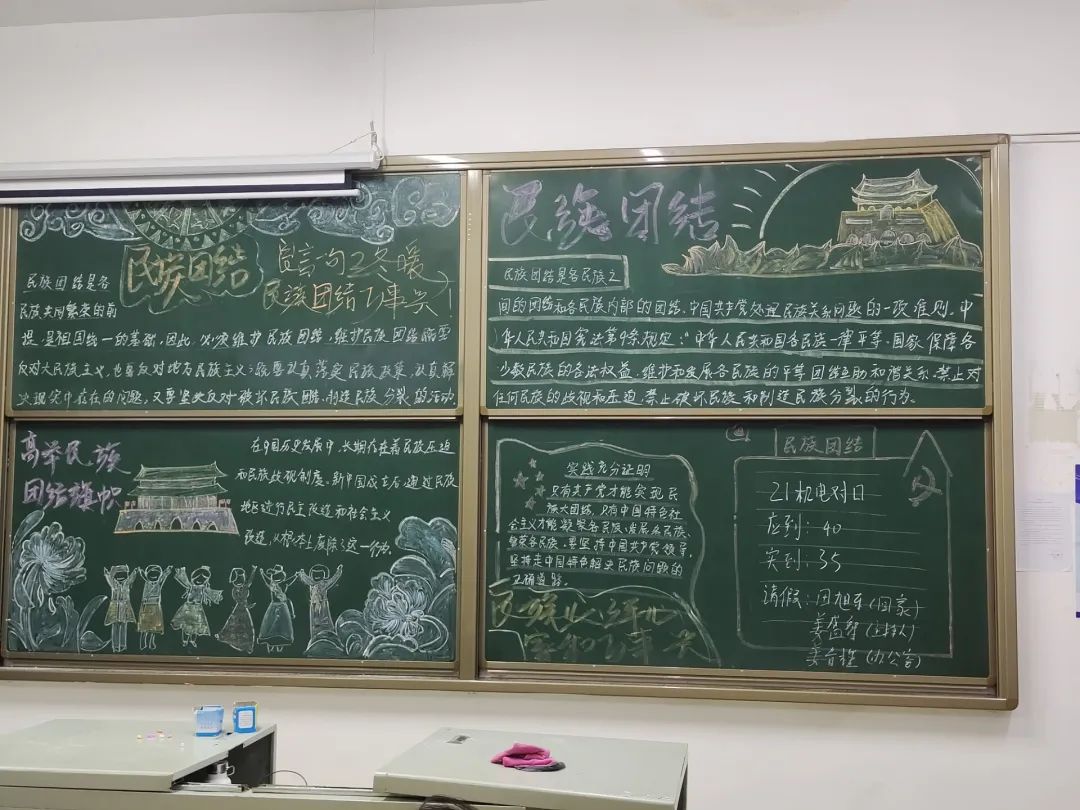 民族团结
宣言句之冬暖
民族团结万事兴！
民族团结是各
民族共同繁荣的前
提，是祖国统一的基础，因此，必须维护民族团结，维护民族团结既要
反对大民族主义，也要反对地方民族主义，要认真落实民族政策，认真解
决现实中存在的问题，又要坚决反对破坏民族团结，制造民族分裂的活动
民族团结
民族团结是各民族之
间的团结和各民族内部的团结，中国共产党处理民族关系问题的一项准则，中
华人民共和国宪法第4条规定："中华人民共和国各民族一律平等，国家保障各
少数民族的合法权益，维护和发展各民族的平等团结互助和谐关系，禁止对
任何民族的歧视和压迫，禁止破坏民族和制造民族分裂的行为。
高举民族
团结旗帜
在中国历史发展中，长期存在着民族压迫
和民族歧视制度，新中国成立后通过民族
地区进行民主改造和社会主义
改造，从根本上废除了这一行为。
实践充分证明
只有共产党才能实现民
族大团结，只有中国特色社
会主义才能凝聚各民族、发展各民族、
繁荣各民族，要坚持中国共产党领导，
坚持走中国特色解决民族问题的
正确道路。
民族
家和万事兴
民族团结
21机电对口
应到：40
实到：35
请假：田旭东（回家）
姜（主持人）
姜（办公室）